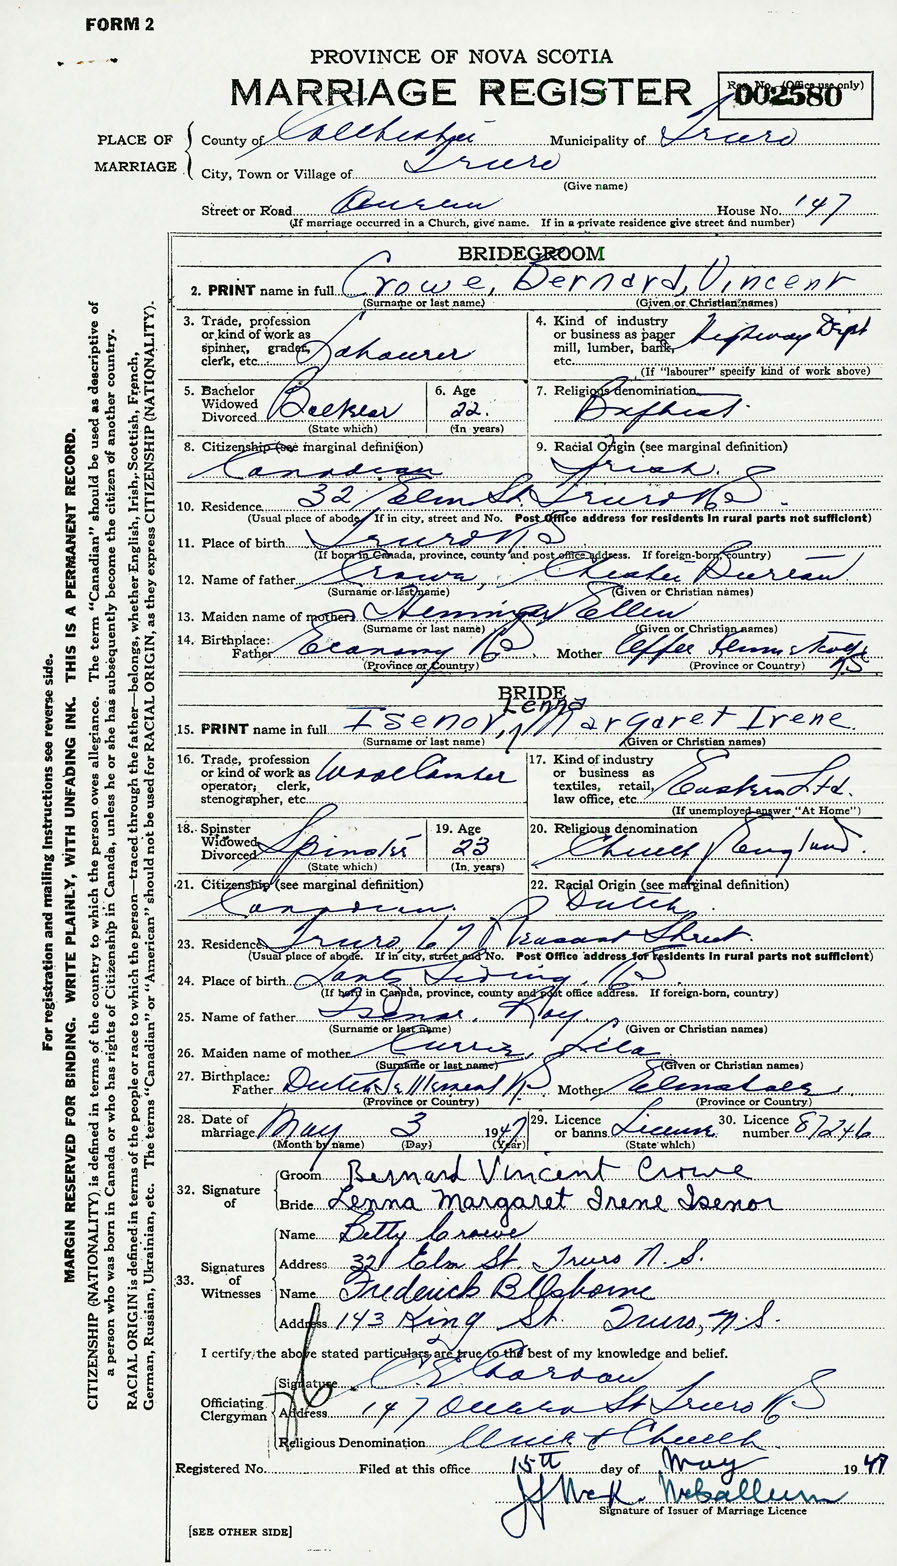 FORM 2
PROVINCE OF NOVA SCOTIA
MARRIAGE REGISTER
Reg. No. (Office use only)
002580
PLACE OF MARRIAGE
County of Colchester Municipality of Truro
City, Town or Village of Truro
(Give name)
Street or Road Queen House No. 147
(If marriage occurred in a Church, give name. If in a private residence give street and number)
BRIDEGROOM
2. PRINT name in full Crowe, Bernard, Vincent
(Surname or last name) (Given or Christian names)
3. Trade, profession or kind of work as spinner, grader, clerk, etc. Labourer
4. Kind of industry or business as paper mill, lumber, bank, etc. Highway Dept
(If "labourer" specify kind of work above)
5. Bachelor Widowed Divorced Bachelor
(State which)
6. Age 22.
(In years)
7. Religious denomination Baptist
8. Citizenship (see marginal definition) Canadian
9. Racial Origin (see marginal definition) Irish.
10. Residence 32 Elm St. Truro N S
(Usual place of abode. If in city, street and No. Post Office address for residents in rural parts not sufficient)
11. Place of birth Truro N S
(If born in Canada, province, county and post office address. If foreign-born, country)
12. Name of father Crowe,
(Surname or last name) (Given or Christian names)
13. Maiden name of mother Ellen
(Surname or last name) (Given or Christian names)
14. Birthplace: Father Economy N S Mother N.S
(Province or Country) (Province or Country)
BRIDE
Lenna
15. PRINT name in full Isenor, Margaret Irene
(Surname or last name) (Given or Christian names)
16. Trade, profession or kind of work as operator, clerk, stenographer, etc.
17. Kind of industry or business as textiles, retail, law office, etc. Eastern Ltd.
(If unemployed answer "At Home")
18. Spinster Widowed Divorced Spinster
(State which)
19. Age 23
(In years)
20. Religious denomination Church England.
21. Citizenship (see marginal definition) Canadian.
22. Racial Origin (see marginal definition) Dutch
23. Residence Truro, 67 Pleasant Street.
(Usual place of abode. If in city, street and No. Post Office address for residents in rural parts not sufficient)
24. Place of birth N S
(If born in Canada, province, county and post office address. If foreign-born, country)
25. Name of father Isenor, Roy
(Surname or last name) (Given or Christian names)
26. Maiden name of mother Currie, Lila
(Surname or last name) (Given or Christian names)
27. Birthplace: Father Dutch Settlement N S Mother Elmsdale
(Province or Country) (Province or Country)
28. Date of marriage May 3 1947
(Month by name) (Day) (Year)
29. Licence or banns License
(State which)
30. Licence number 87246
32. Signature of
Groom Bernard Vincent Crowe
Bride Lenna Margaret Irene Isenor
33. Signatures of Witnesses
Name Betty Crowe
Address 32 Elm St. Truro N.S.
Name Frederick B
Address 143 King St. Truro, N.S.
I certify the above stated particulars are true to the best of my knowledge and belief.
Officiating Clergyman
Signature
Address 147 Queen St Truro N S
Religious Denomination United Church
Registered No. Filed at this office 15th day of May 1947
McCallum
Signature of Issuer of Marriage Licence
[SEE OTHER SIDE]
For registration and mailing instructions see reverse side.
MARGIN RESERVED FOR BINDING. WRITE PLAINLY, WITH UNFADING INK. THIS IS A PERMANENT RECORD.
CITIZENSHIP (NATIONALITY) is defined in terms of the country to which the person owes allegiance. The term "Canadian" should be used as descriptive of
a person who was born in Canada or who has rights of Citizenship in Canada, unless he or she has subsequently become the citizen of another country.
RACIAL ORIGIN is defined in terms of the people or race to which the person—traced through the father—belongs, whether English, Irish, Scottish, French,
German, Russian, Ukrainian, etc. The terms "Canadian" or "American" should not be used for RACIAL ORIGIN, as they express CITIZENSHIP (NATIONALITY).